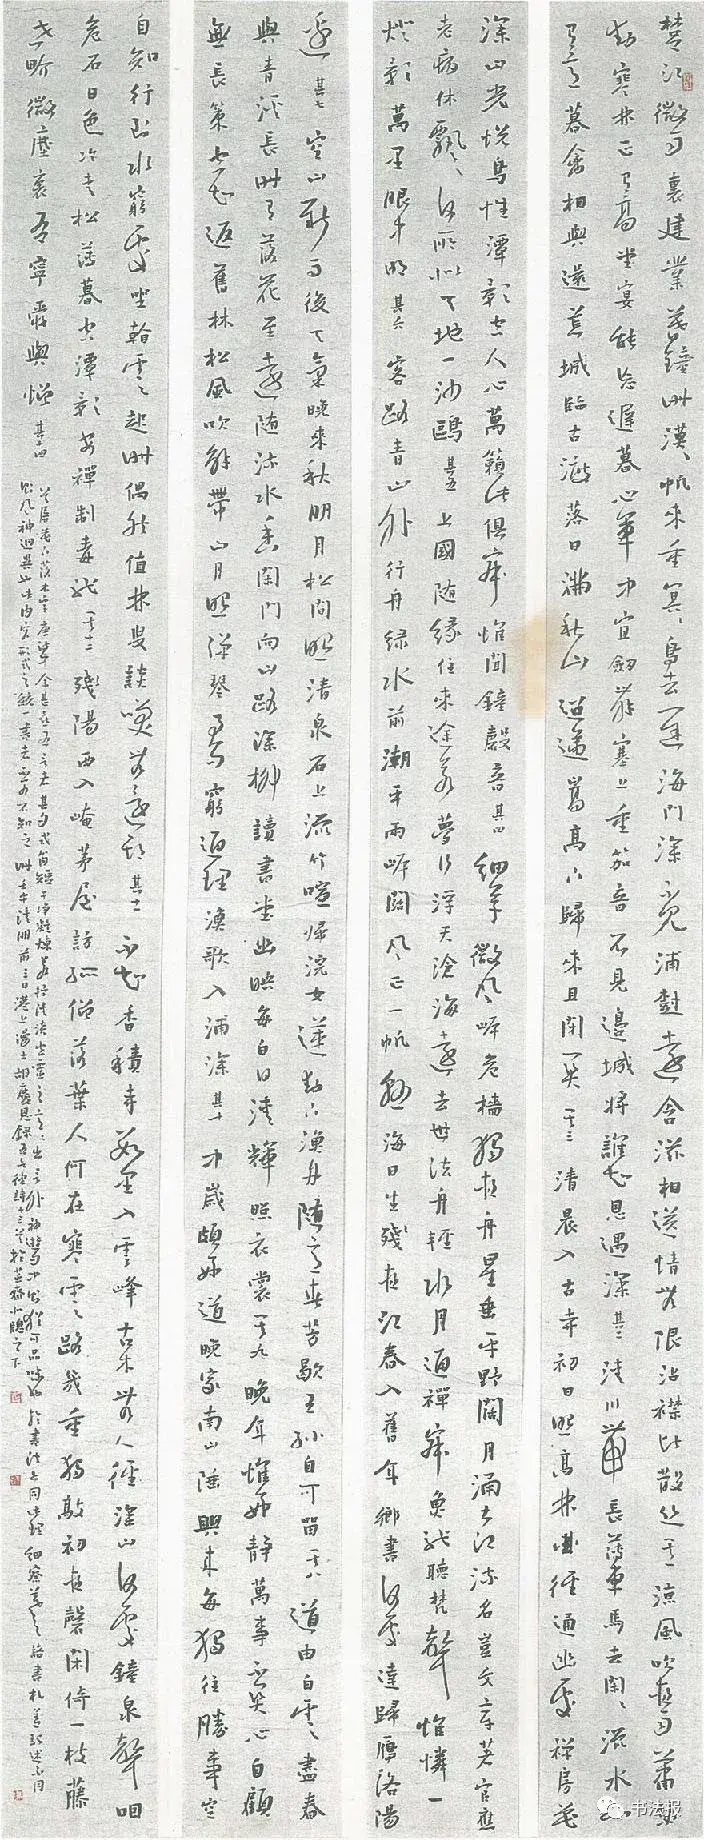 楚江微雨裏建業暮鐘時漠漠帆來重冥冥鳥去遲海門深不見浦樹遠含滋相送情無限沾襟比散絲其一涼風吹夜雨蕭瑟
動寒林正有高堂宴能忘遲暮心軍中宜劍舞塞上重笳音不見邊城將誰知恩遇深其二清川帶長薄車馬去閑閑流水如
有意暮禽相與還荒城臨古渡落日滿秋山迢遞嵩高下歸來且閉關其三清晨入古寺初日照高林曲徑通幽處禪房花
深山光悅鳥性潭影空人心萬籟此俱寂惟聞鐘磬音其四細草微風岸危檣獨夜舟星垂平野闊月涌大江流名豈文章著官應
老病休飄飄何所似天地一沙鷗其五上國隨緣住來途若夢行浮天滄海遠去世法舟輕水月通禪寂魚龍聽梵聲惟憐一
燈影萬里眼中明其六客路青山外行舟綠水前潮平兩岸闊風正一帆懸海日生殘夜江春入舊年鄉書何處達歸雁洛陽
邊其七空山新雨後天氣晚來秋明月松間照清泉石上流竹喧歸浣女蓮動下漁舟隨意春芳歇王孫自可留其八道由白雲盡春
與青溪長時有落花至遠隨流水香閑門向山路深柳讀書堂幽映每白日清輝照衣裳其九晚年惟好靜萬事不關心自顧
無長策空知返舊林松風吹解帶山月照彈琴君問窮通理漁歌入浦深其十中歲頗好道晚家南山陲興來每獨往勝事空
自知行到水窮處坐看雲起時偶然值林叟談笑無還期其十一不知香積寺數里入雲峰古木無人徑深山何處鐘泉聲咽
危石日色冷青松薄暮空潭影安禪制毒龍其十二殘陽西入崦茅屋訪孤僧落葉人何在寒雲路幾重獨敲初夜磬閑倚一枝藤
世界微塵裏吾寧愛與憎
书法报